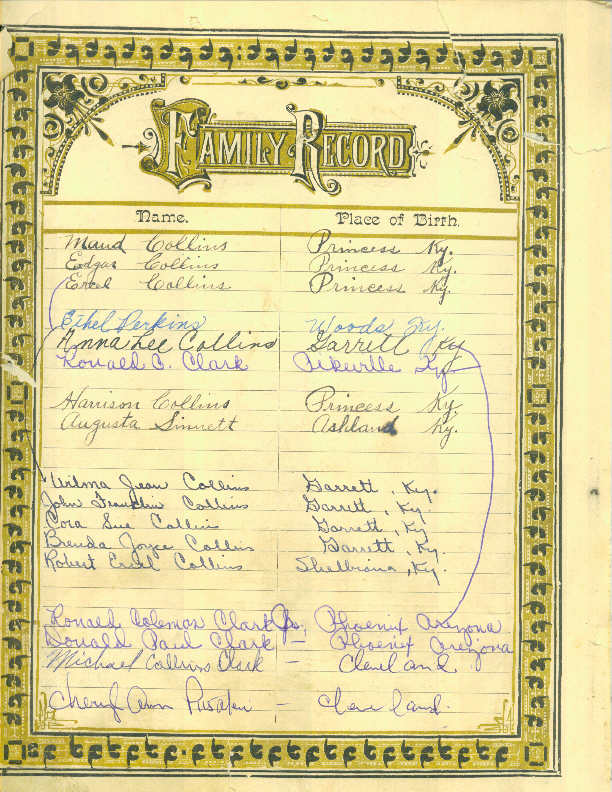 FAMILY RECORD
Name. Place of Birth.
Maud Collins Princess Ky.
Edgar Collins Princess Ky.
Ercel Collins Princess Ky.
Ethel Perkins Woods Ky.
Anna Lee Collins Garrett Ky
Ronald C. Clark Pikeville Ky
Harrison Collins Princess Ky.
Augusta Sinnett Ashland Ky.
Wilma Jean Collins Garrett, Ky.
John Franklin Collins Garrett, Ky.
Cora Sue Collins Garrett, Ky
Brenda Joyce Collins Garrett, Ky.
Robert Ercil Collins Shelbiana, Ky.
Ronald Coleman Clark Jr. Phoenix Arizona
Donald Paul Clark – Phoenix Arizona
Michael Collins Clark – Cleveland
Cheryl Ann – Cleveland.